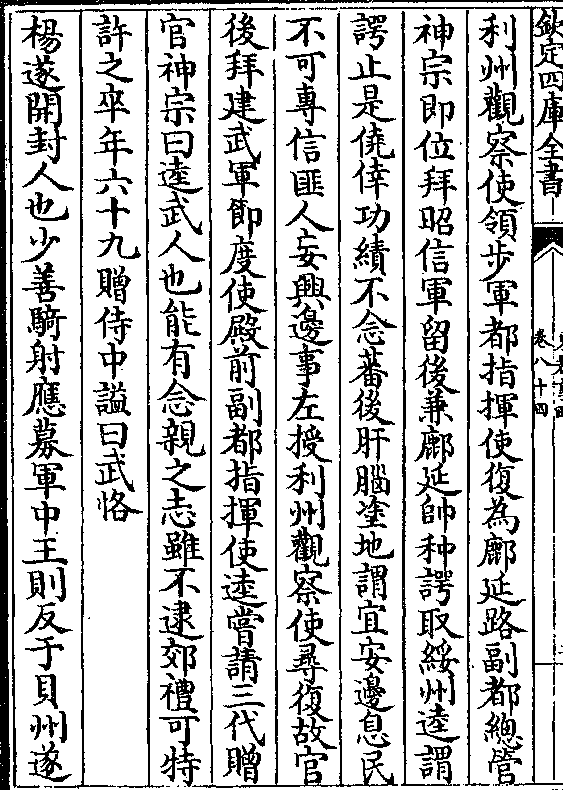 欽定四庫全書
卷八十四
利州觀察使領步軍都指揮使復為鄜延路副都總管
神宗即位拜昭信軍留後兼鄜延帥种諤取綏州逵謂
諤止是僥倖功績不念蕃後肝腦塗地謂宜安邊息民
不可專信匪人妄興邊事左授利州觀察使尋復故官
後拜建武軍節度使殿前副都指揮使逵嘗請三代贈
官神宗曰逵武人也能有念親之志雖不逮郊禮可特
許之卒年六十九贈侍中謚曰武恪
楊遂開封人也少善騎射應募軍中王則反于貝州遂